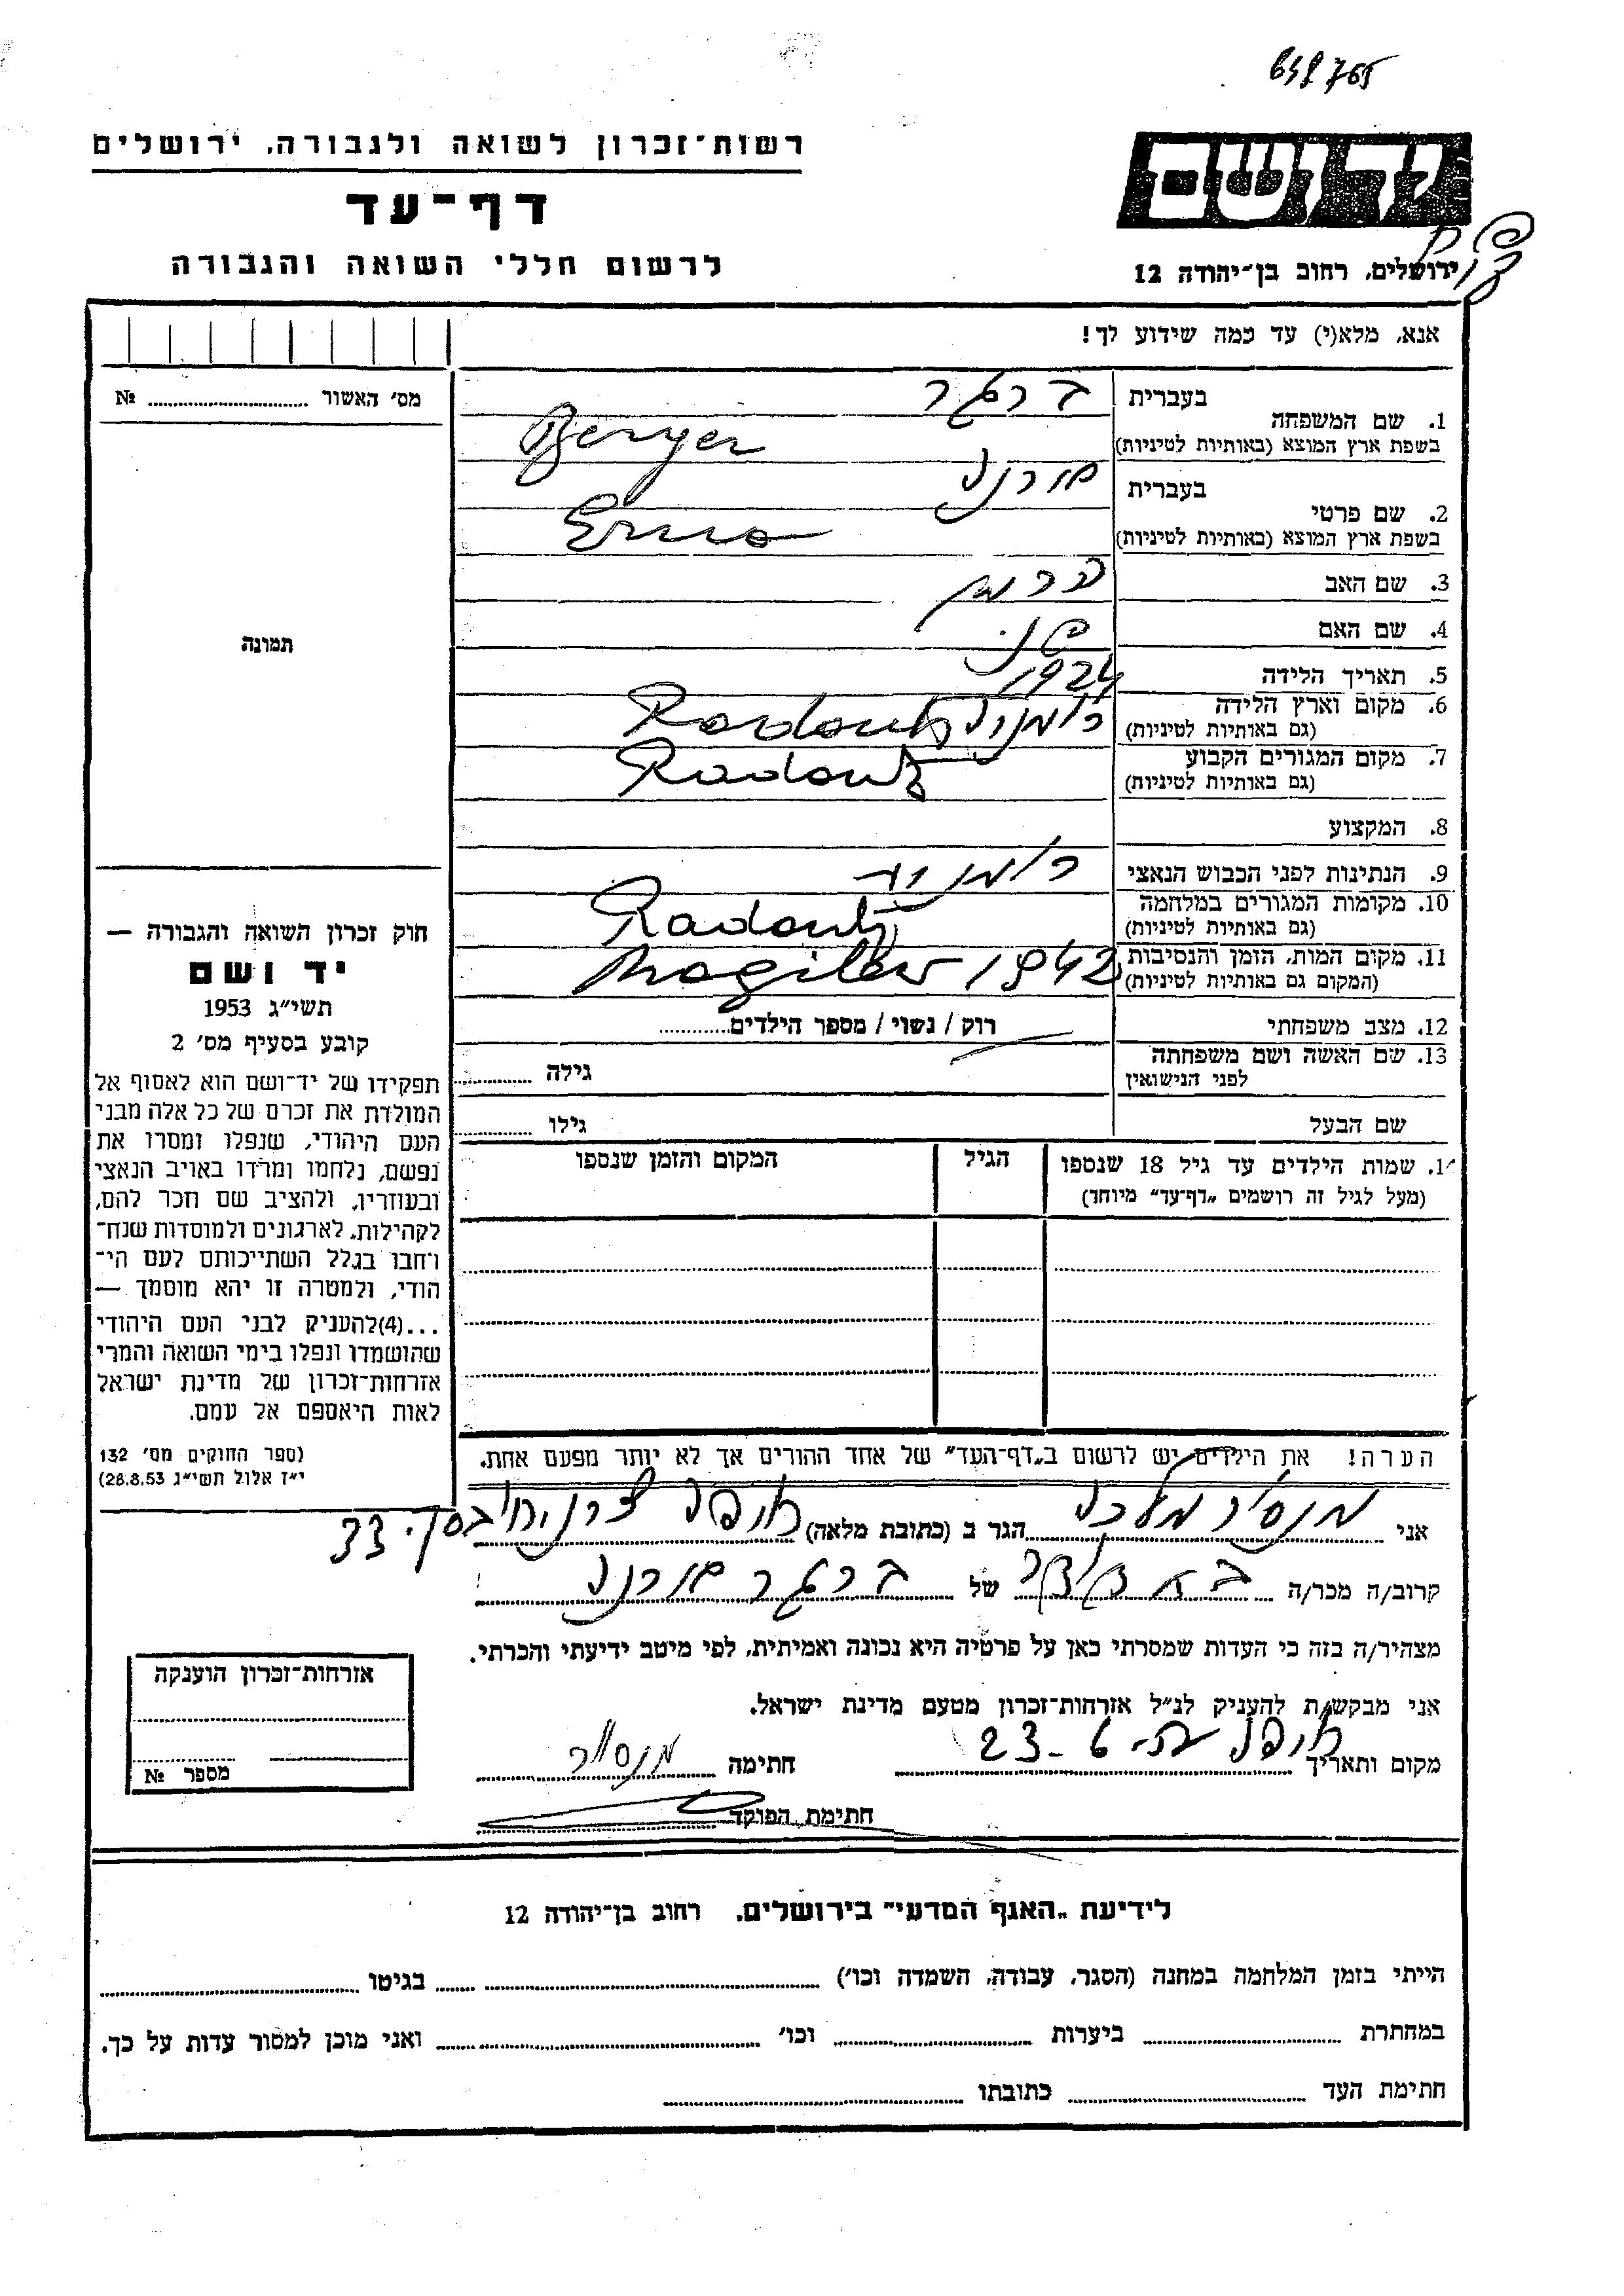 698765
רשות־זכרון לשואה ולגבורה, ירושלים
דף־עד
לרשום חללי השואה והגבורה
ידושם
ירושלים, רחוב בן־יהודה 12
אנא, מלא(י) עד כמה שידוע לך!
מס׳ האשור № 
1. שם המשפחה בעברית ברגר
בשפת ארץ המוצא (באותיות לטיניות) Berger
2. שם פרטי בעברית
בשפת ארץ המוצא (באותיות לטיניות) Erna
3. שם האב
4. שם האם
5. תאריך הלידה 1924
6. מקום וארץ הלידה (גם באותיות לטיניות) רומניה Radoutz
7. מקום המגורים הקבוע (גם באותיות לטיניות) Radoutz
8. המקצוע
9. הנתינות לפני הכבוש הנאצי
10. מקומות המגורים במלחמה (גם באותיות לטיניות) Radoutz
11. מקום המות, הזמן והנסיבות (המקום גם באותיות לטיניות) Mogilev 1942
12. מצב משפחתי רוק / נשוי / מספר הילדים
13. שם האשה ושם משפחתה לפני הנישואין גילה
שם הבעל גילו
14. שמות הילדים עד גיל 18 שנספו הגיל המקום והזמן שנספו
(מעל לגיל זה רושמים „דף־עד״ מיוחד)
תמונה
חוק זכרון השואה והגבורה —
יד ושם
תשי״ג 1953
קובע בסעיף מס׳ 2
תפקידו של יד־ושם הוא לאסוף אל
המולדת את זכרם של כל אלה מבני
העם היהודי, שנפלו ומסרו את
נפשם, נלחמו ומרדו באויב הנאצי
ובעוזריו, ולהציב שם וזכר להם,
לקהילות, לארגונים ולמוסדות שנח־
רחבו בגלל השתייכותם לעם הי־
הודי, ולמטרה זו יהא מוסמך —
...(4)להעניק לבני העם היהודי
שהושמדו ונפלו בימי השואה והמרי
אזרחות־זכרון של מדינת ישראל
לאות היאספם אל עמם.
(ספר החוקים מס׳ 132
י״ז אלול תשי״ג 28.8.53)
הערה! את הילדים יש לרשום ב„דף־העד״ של אחד ההורים אך לא יותר מפעם אחת.
אני הגר ב (כתובת מלאה) 33
קרוב/ה מכר/ה של ברגר
מצהיר/ה בזה כי העדות שמסרתי כאן על פרטיה היא נכונה ואמיתית, לפי מיטב ידיעתי והכרתי.
אני מבקש/ת להעניק לנ״ל אזרחות־זכרון מטעם מדינת ישראל.
מקום ותאריך 23-6 חתימה
חתימת הפוקד
אזרחות־זכרון הוענקה
מספר №
לידיעת „האגף המדעי״ בירושלים, רחוב בן־יהודה 12
הייתי בזמן המלחמה במחנה (הסגר, עבודה, השמדה וכו׳) בגיטו
במחתרת ביערות וכו׳ ואני מוכן למסור עדות על כך.
חתימת העד כתובתו